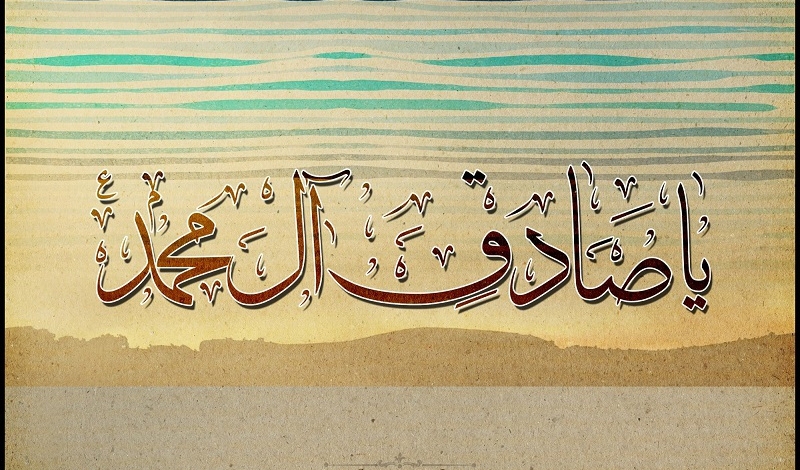 يا صَادِقَ آلَ مُحَمَّدٍ ع